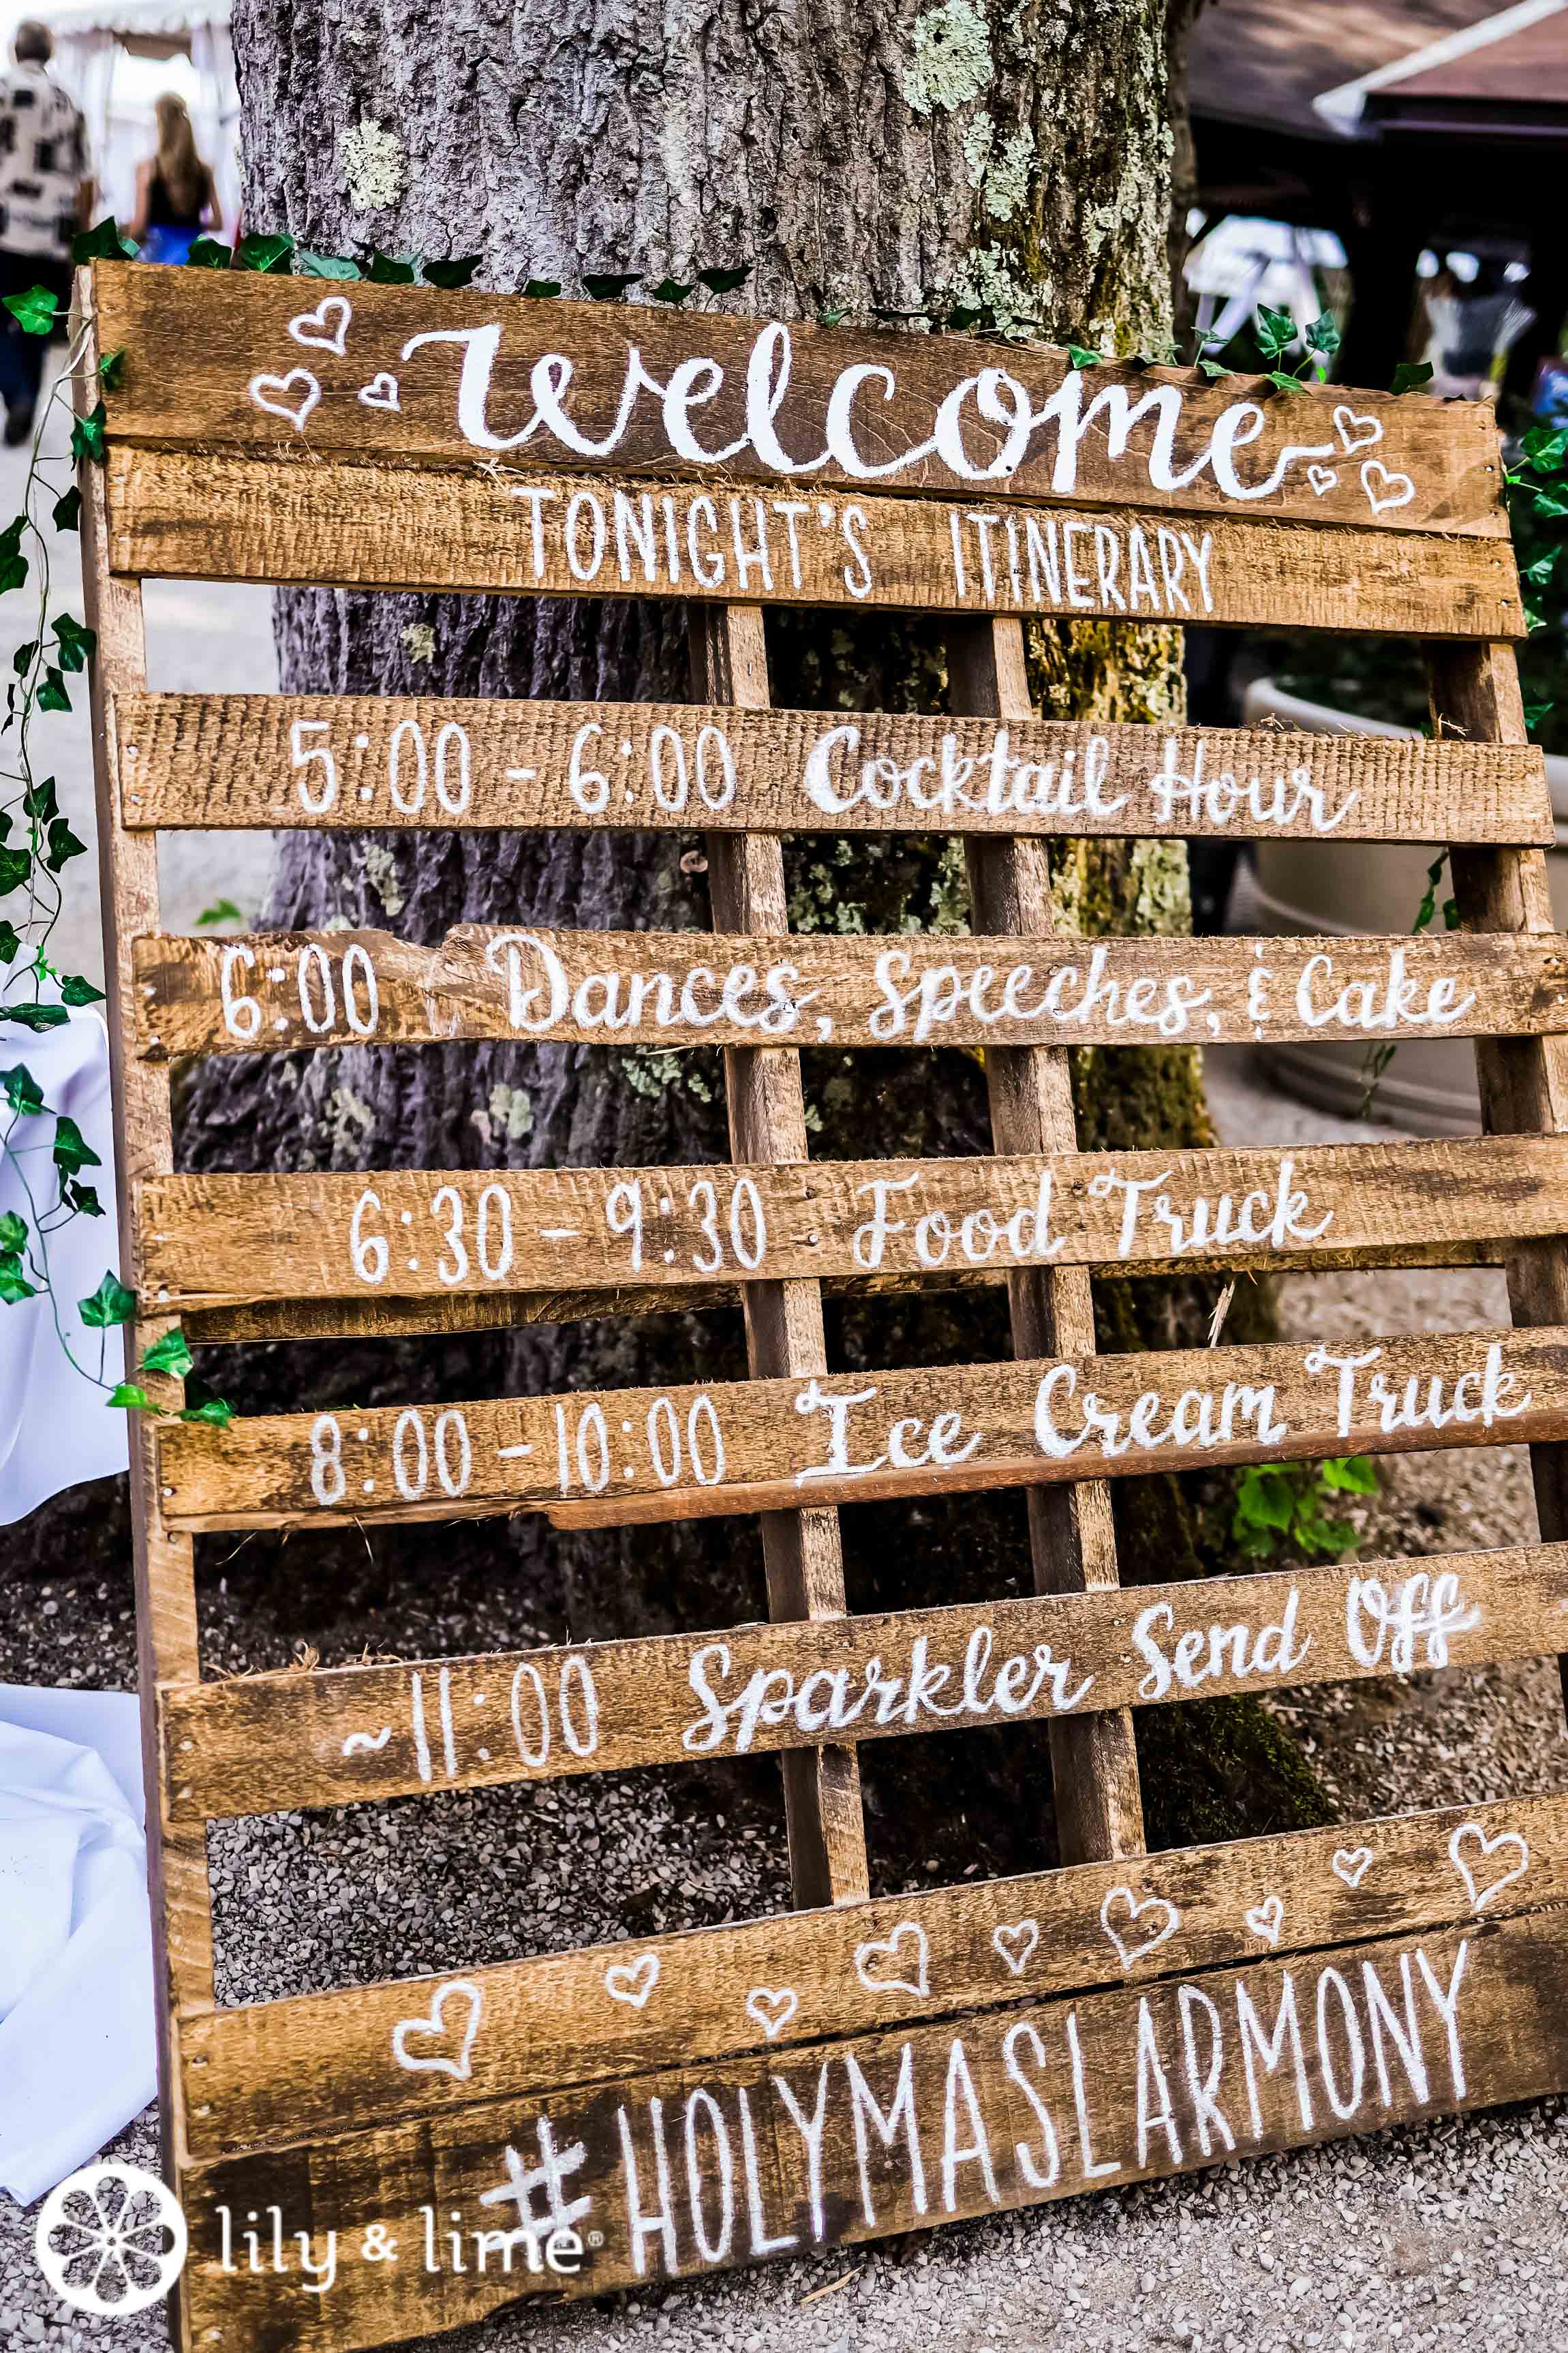 welcome
TONIGHT'S ITINERARY
5:00 - 6:00 Cocktail Hour
6:00 Dances, Speeches, & Cake
6:30 - 9:30 Food Truck
8:00 - 10:00 Ice Cream Truck
~11:00 Sparkler Send Off
#HOLYMASLARMONY
lily & lime®